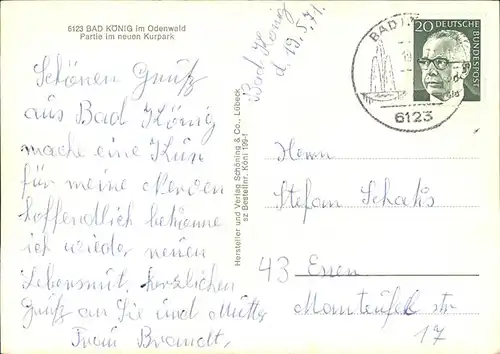 6123 BAD KÖNIG im Odenwald
Partie im neuen Kurpark
Bad König
d. 19.5.71.
Schönen Gruß
aus Bad König
mache eine Kur
für meine Nerven
hoffendlich bekomme
ich wieder neuen
Lebensmut, herzlichen
Gruß an Sie und Mutter
Frau Brandt,
Hersteller und Verlag Schöning & Co., Lübeck
sz Bestellnr. Köni 199-1
BAD
6123
20 DEUTSCHE
BUNDESPOST
Herrn
Stefan
43 Essen
Manteufel str
17